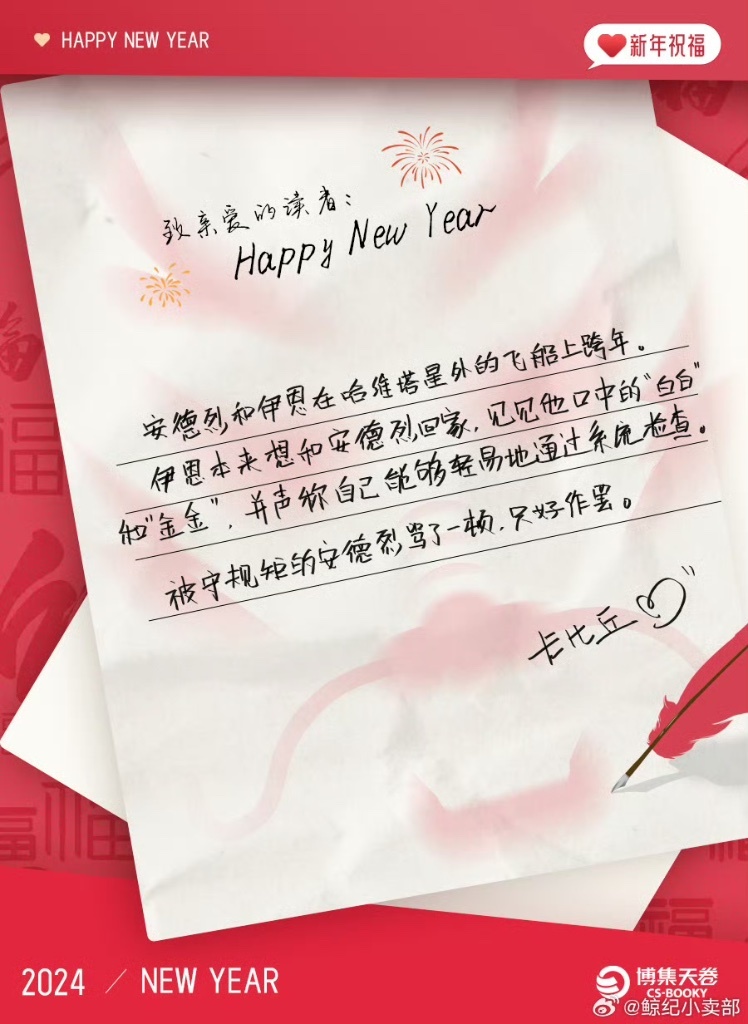 HAPPY NEW YEAR
新年祝福
致亲爱的读者：
Happy New Year
安德烈和伊恩在哈维塔星外的飞船上跨年。
伊恩本来想和安德烈回家，见见他口中的“白白”
和“金金”，并声称自己能够轻易地通过系统检查。
被守规矩的安德烈骂了一顿，只好作罢。
卡比丘
2024 / NEW YEAR
博集天卷
CS-BOOKY
@鲸纪小卖部